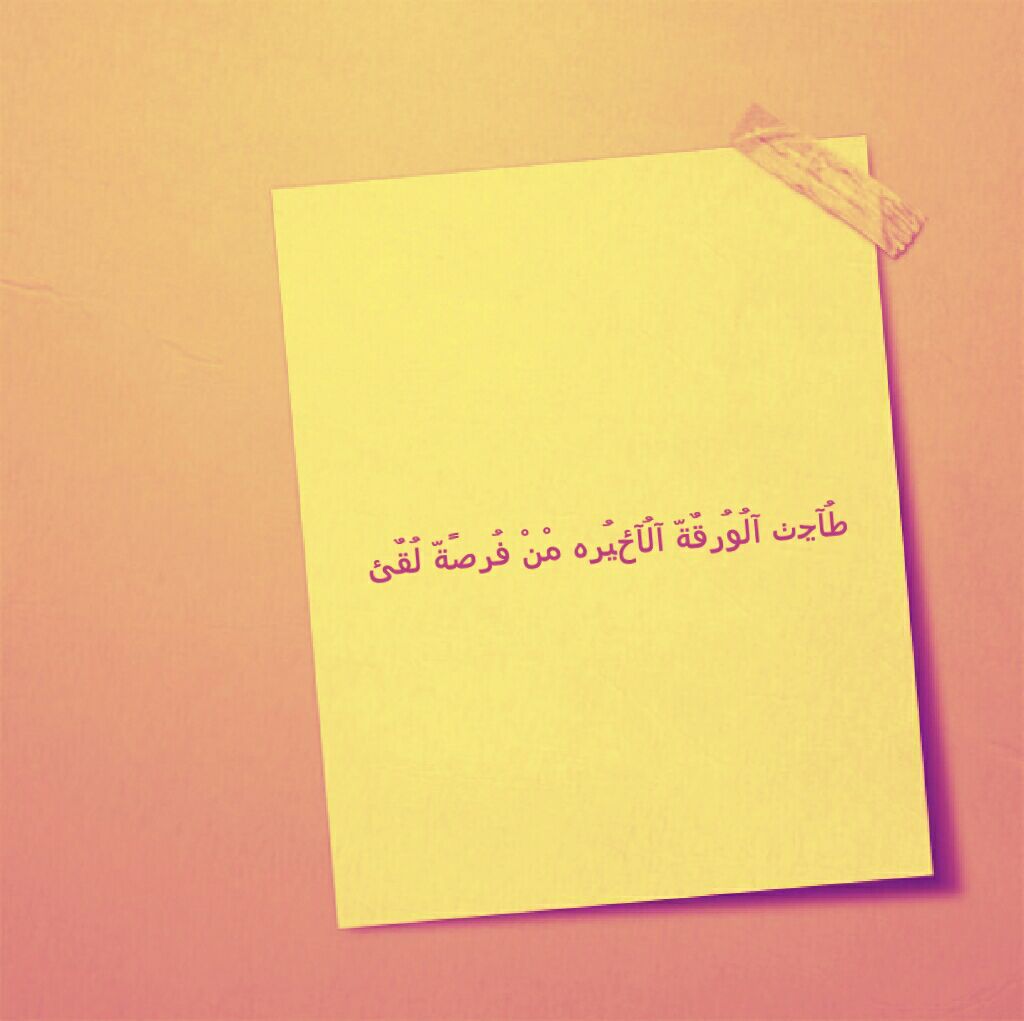 طُآحٍت آلُوُرقٌةّ آلُآخٌيُره مْنْ فُرصًةّ لُقٌئ